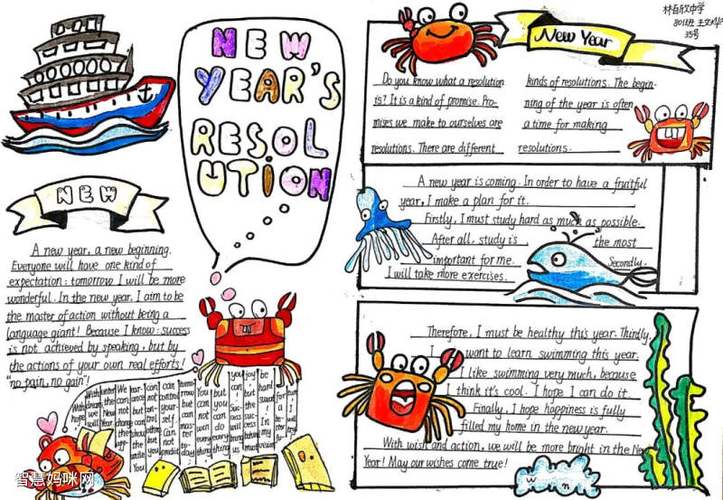 NEW
YEAR'S
RESOL
UTION
NEW
A new year, a new beginning.
Everyone will have one kind of
expectation: tomorrow I will be more
wonderful. In the new year, I aim to be
the master of action without being a
language giant! Because I know: success
is not achieved by speaking, but by
the actions of your own real efforts!
"no pain, no gain"!
New Year
8011班
35号
Do you know what a resolution
is? It is a kind of promise. Pro-
mises we make to ourselves are
resolutions. There are different
kinds of resolutions. The begin-
ning of the year is often
a time for making
resolutions.
A new year is coming. In order to have a fruitful
year, I make a plan for it.
Firstly, I must study hard as much as possible.
After all, study is the most
important for me. Secondly,
I will take more exercises.
Therefore, I must be healthy this year. Thirdly,
I want to learn swimming this year.
I like swimming very much, because
I think it's cool. I hope I can do it.
Finally, I hope happiness is fully
filled my home in the new year.
With wish and action, we will be more bright in the New
Year! May our wishes come true!
智慧妈咪网